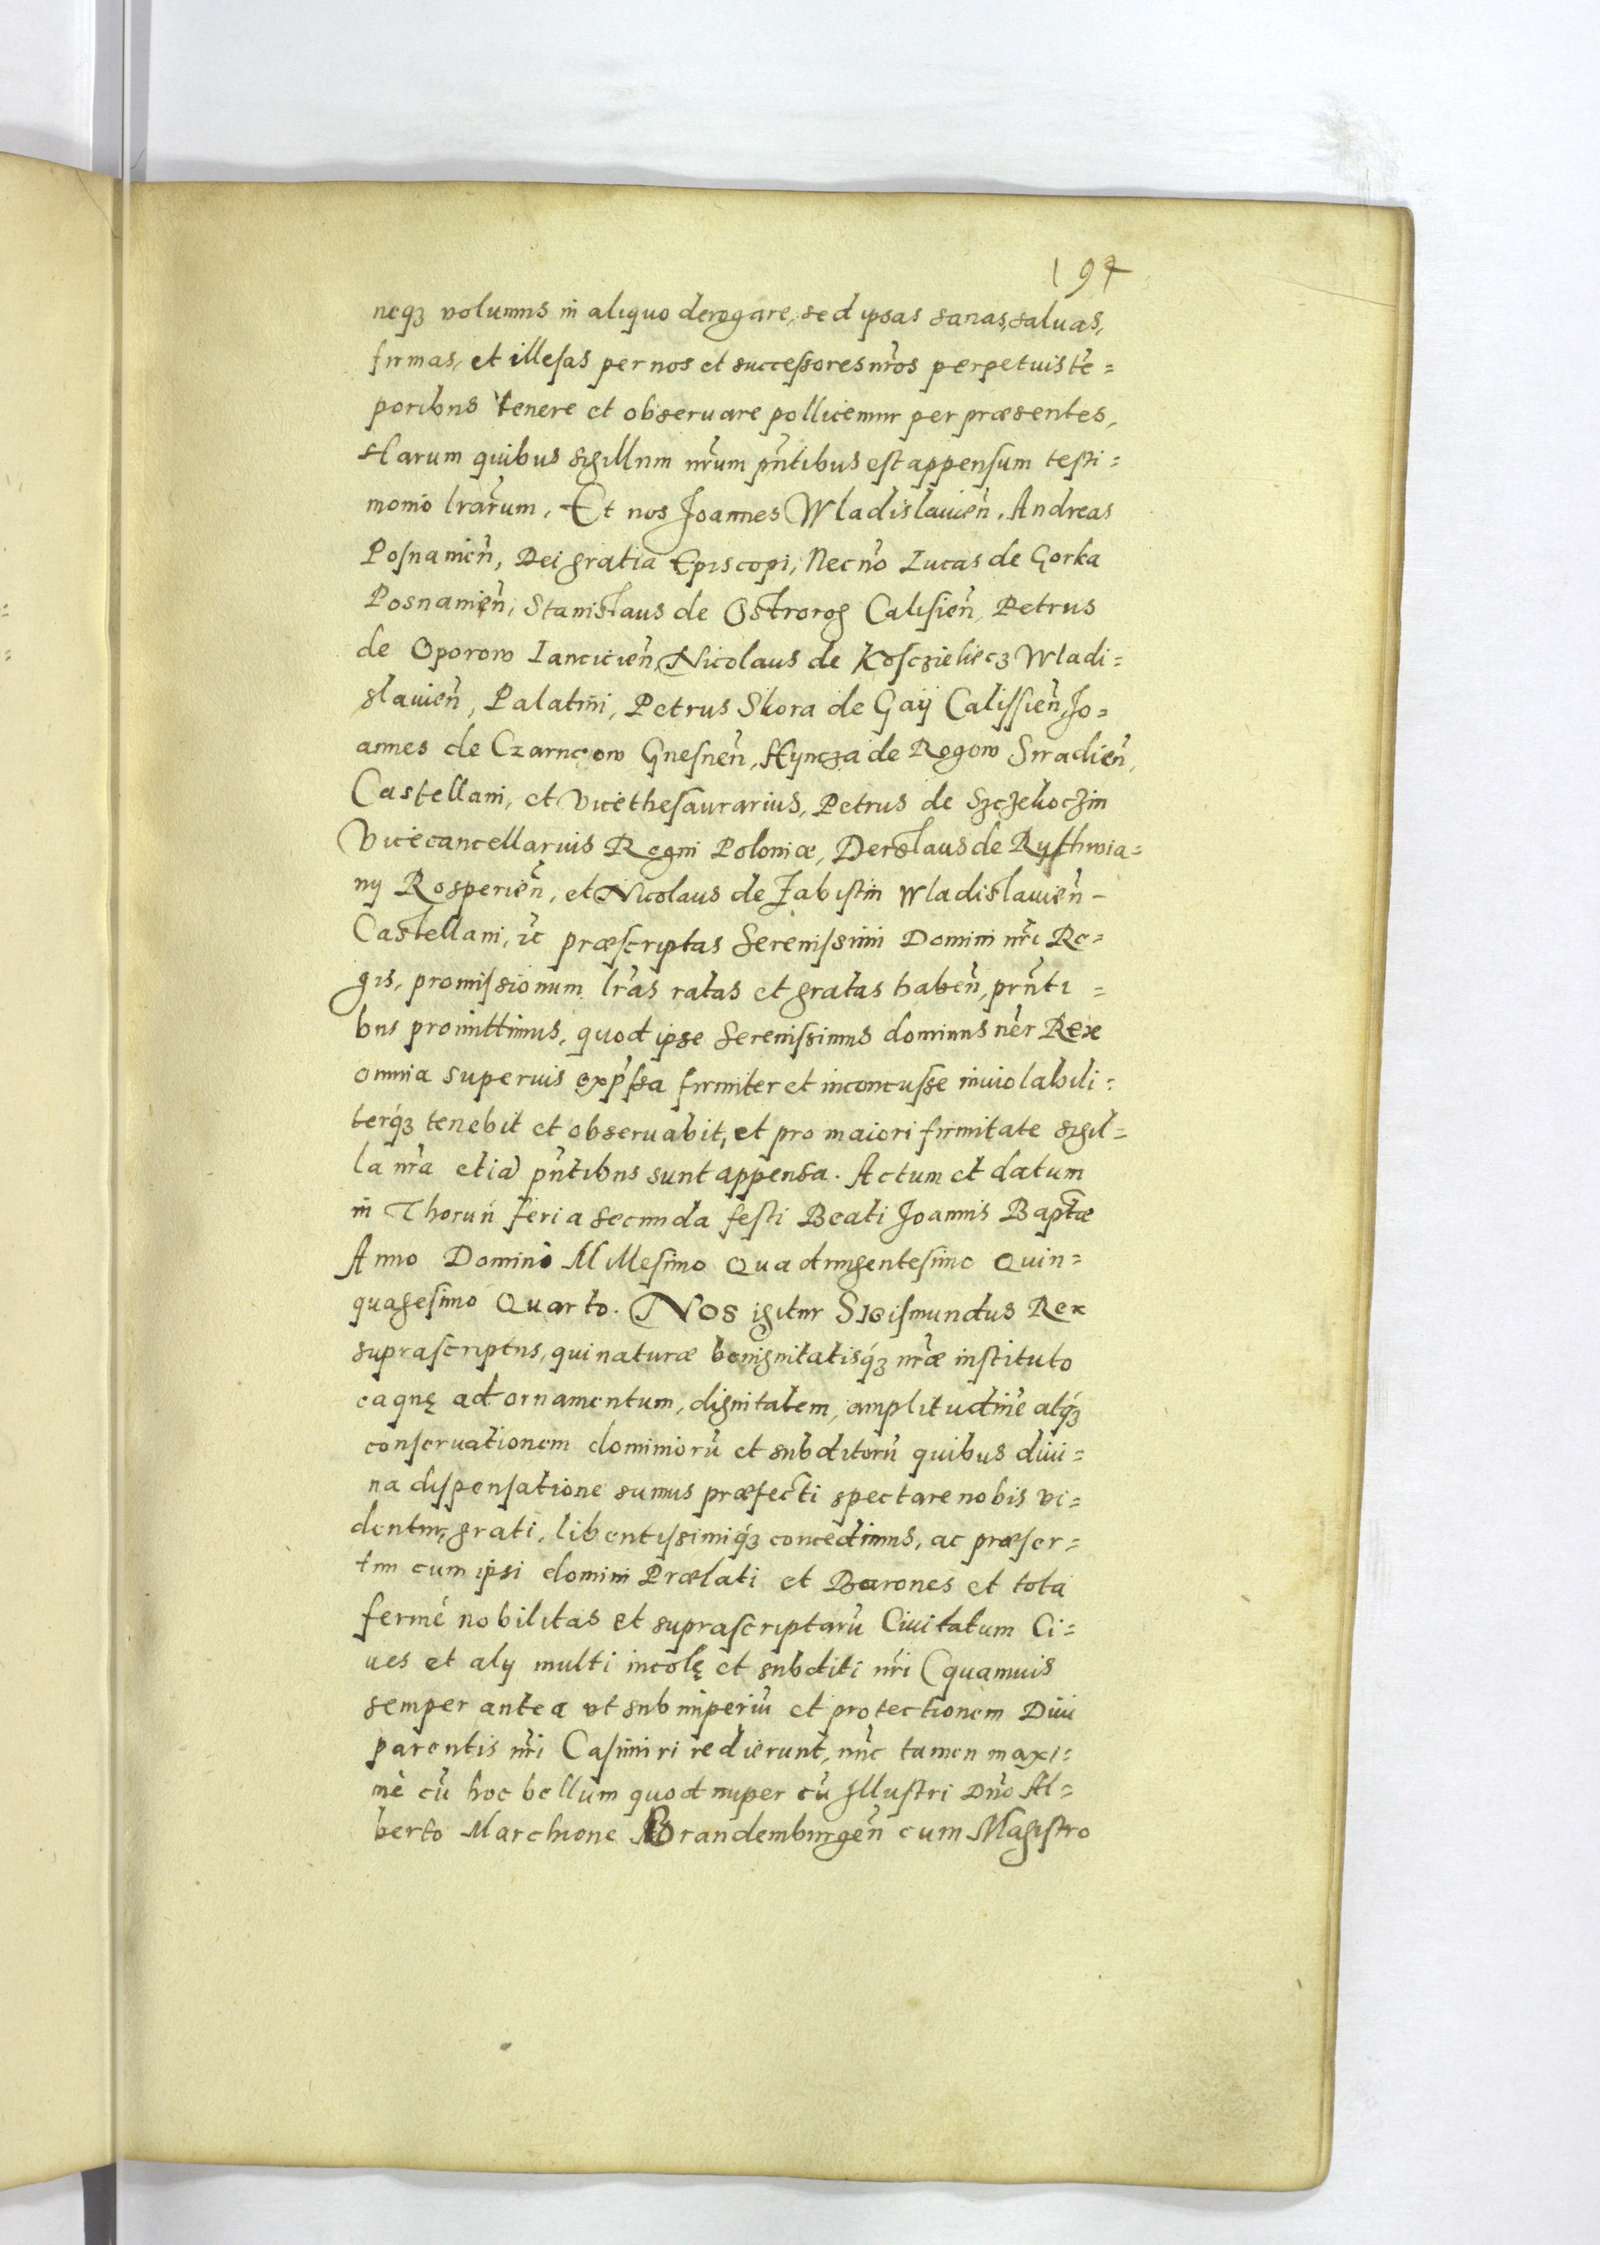 194
neqз volumus in aliquo derogare, sed ipsas sanas, saluas,
firmas, et illesas per nos et successores nr̃os perpetuis tẽ=
poribus tenere et obseruare pollicemur per præsentes,
Harum quibus sigillum nr̃um pñtibus est appensum testi=
monio lrãrum, Et nos Joannes Wladislauieñ, Andreas
Posnanieñ, Dei gratia Episcopi, Necño Lucas de Gorka
Posnanieñ, Stanislaus de Ostrorog Calisieñ, Petrus
de Oporow Lancicieñ, Nicolaus de Kosczieliecz Wladi=
slauieñ, Palatini, Petrus Skora de Gaij Calissieñ, Jo=
annes de Czarncow Gnesneñ, Hyncza de Rogow Siradieñ,
Castellani, et Vicethesaurarius, Petrus de Szczekoczin
Vicecancellarius Regni Poloniæ, Derslaus de Rythwia=
nij Rosperieñ, et Nicolaus de Jabistin Wladislauieñ -
Castellani, ic̃ præscriptas Serenissimi Domini nr̃i Re=
gis, promissionum lr̃as ratas et gratas habeñ, prñti=
bus promittimus, quod ipse Serenissimus dominus ñer Rex
omnia superius exp̃ssa firmiter et inconcusse inuiolabili=
terq́з tenebit et obseruabit, et pro maiori firmitate sigil=
la nr̃a etiã pñtibus sunt appensa. Actum et datum
in Thoruń feria secunda festi Beati Joannis Bapt̃æ
Anno Domini Millesimo Quadringentesimo Quin=
quagesimo Quarto. Nos igitur Sigismundus Rex
suprascriptus, qui naturæ benignitatisq́з nr̃æ instituto
ea quę ad ornamentum, dignitatem, amplitudinẽ atq́з
conseruationem dominiorũ et subditorũ quibus diui=
na dispensatione sumus præfecti spectare nobis vi=
dentur, grati, libentissimiq́з concedimus, ac præser=
tim cum ipsi domini Prælati et Barones et tota
fermè nobilitas et suprascriptarũ Ciuitatum Ci=
ues et alij multi incolę et subditi nr̃i (quamuis
semper antea vt sub imperiũ et protectionem Diui
parentis nr̃i Casimiri redierunt, nũc tamen maxi=
mè cũ hoc bellum quod nuper cũ Illustri Dño Al=
berto Marchione Brandemburgeñ cum Magistro